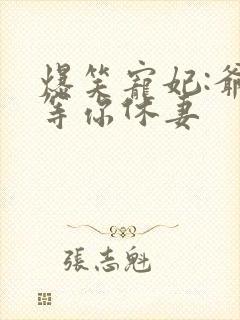 爆笑寵妃:爺
等你休妻
張志魁